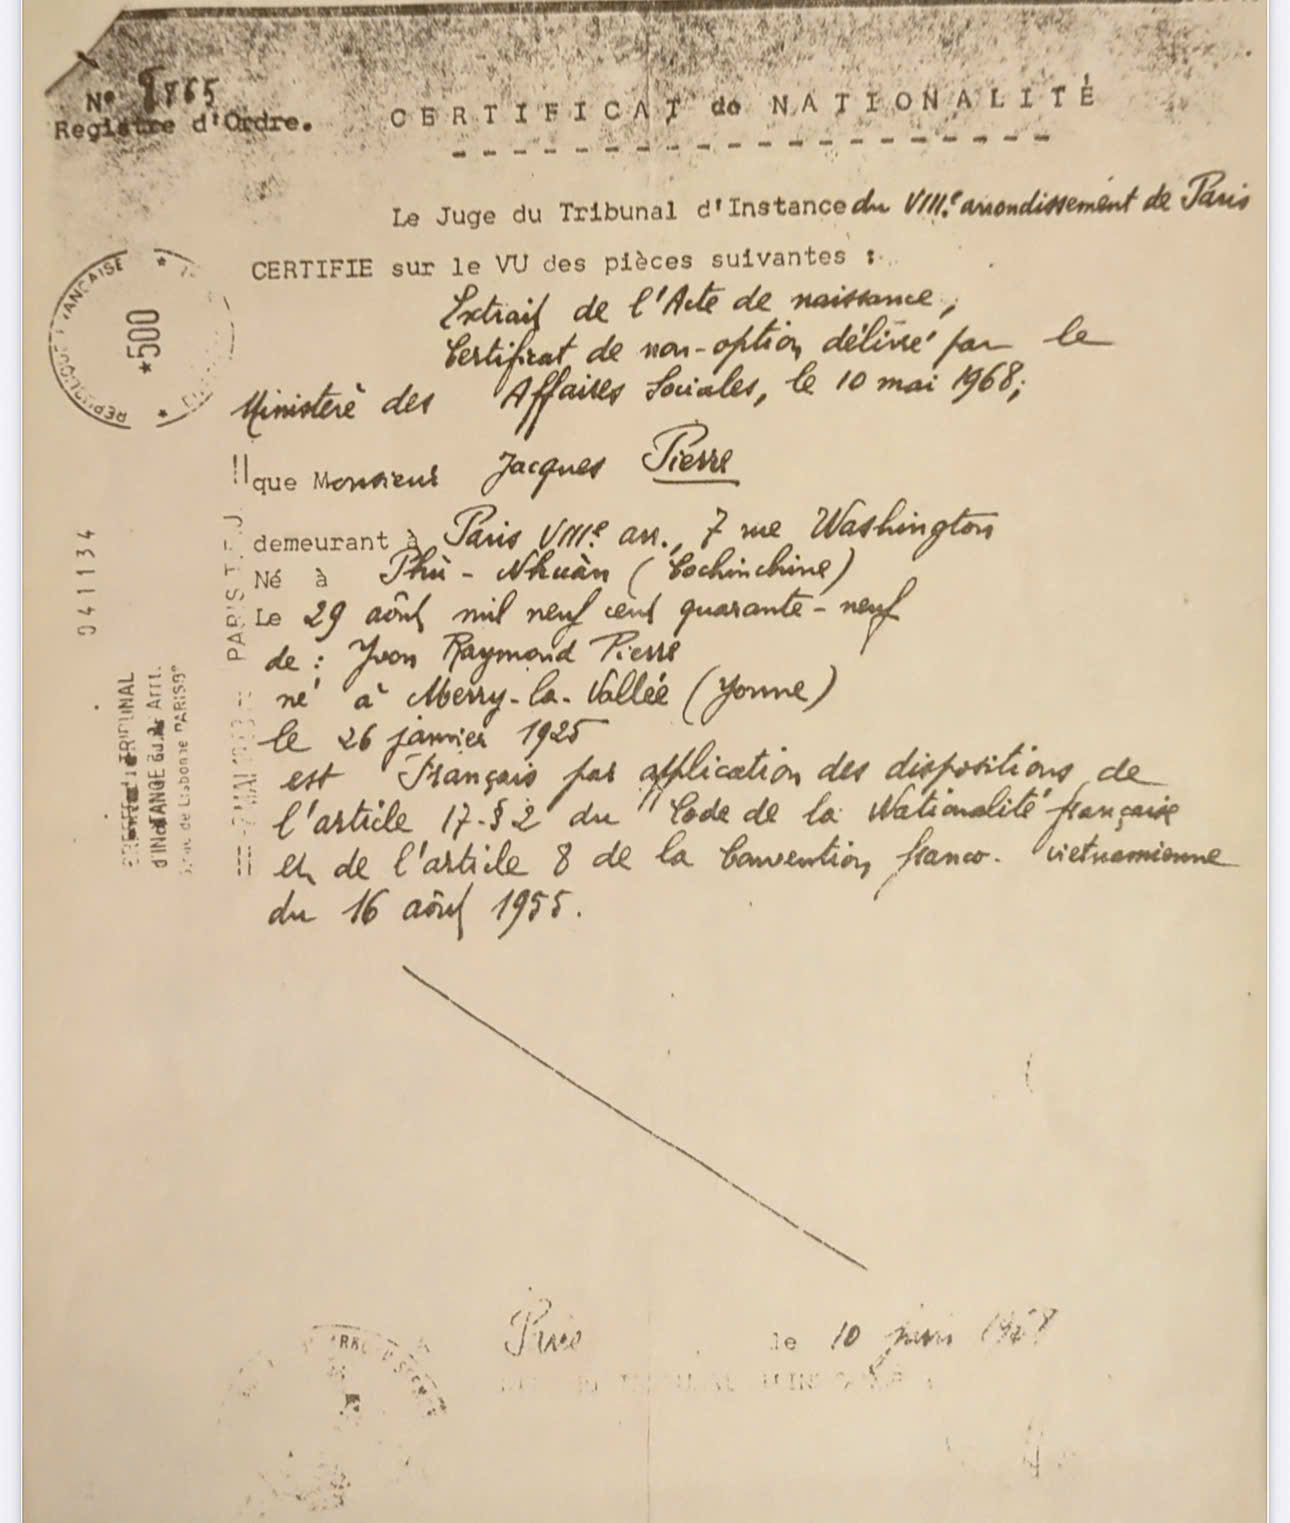 Nº
Registre d'Ordre.
CERTIFICAT de NATIONALITÉ
Le Juge du Tribunal d'Instance du VIIIe arrondissement de Paris
CERTIFIE sur le VU des pièces suivantes :
Extrait de l'Acte de naissance,
Certificat de non-option délivré par le
Ministère des Affaires Sociales, le 10 mai 1968;
que Monsieur Jacques Pierre
demeurant à Paris VIIIe arr., 7 rue Washington
Né à Phù-Nhuàn (Cochinchine)
Le 29 août mil neuf cent quarante-neuf
de : Yvon Raymond Pierre
né à Merry-la-Vallée (Yonne)
le 26 janvier 1925
est Français par application des dispositions de
l'article 17-§2 du Code de la Nationalité française
et de l'article 8 de la Convention franco-vietnamienne
du 16 août 1955.
le 10
RÉPUBLIQUE FRANÇAISE
*500
041134
PARIS
TRIBUNAL
d'INSTANCE du Arrt.
de Lisbonne PARIS 8°